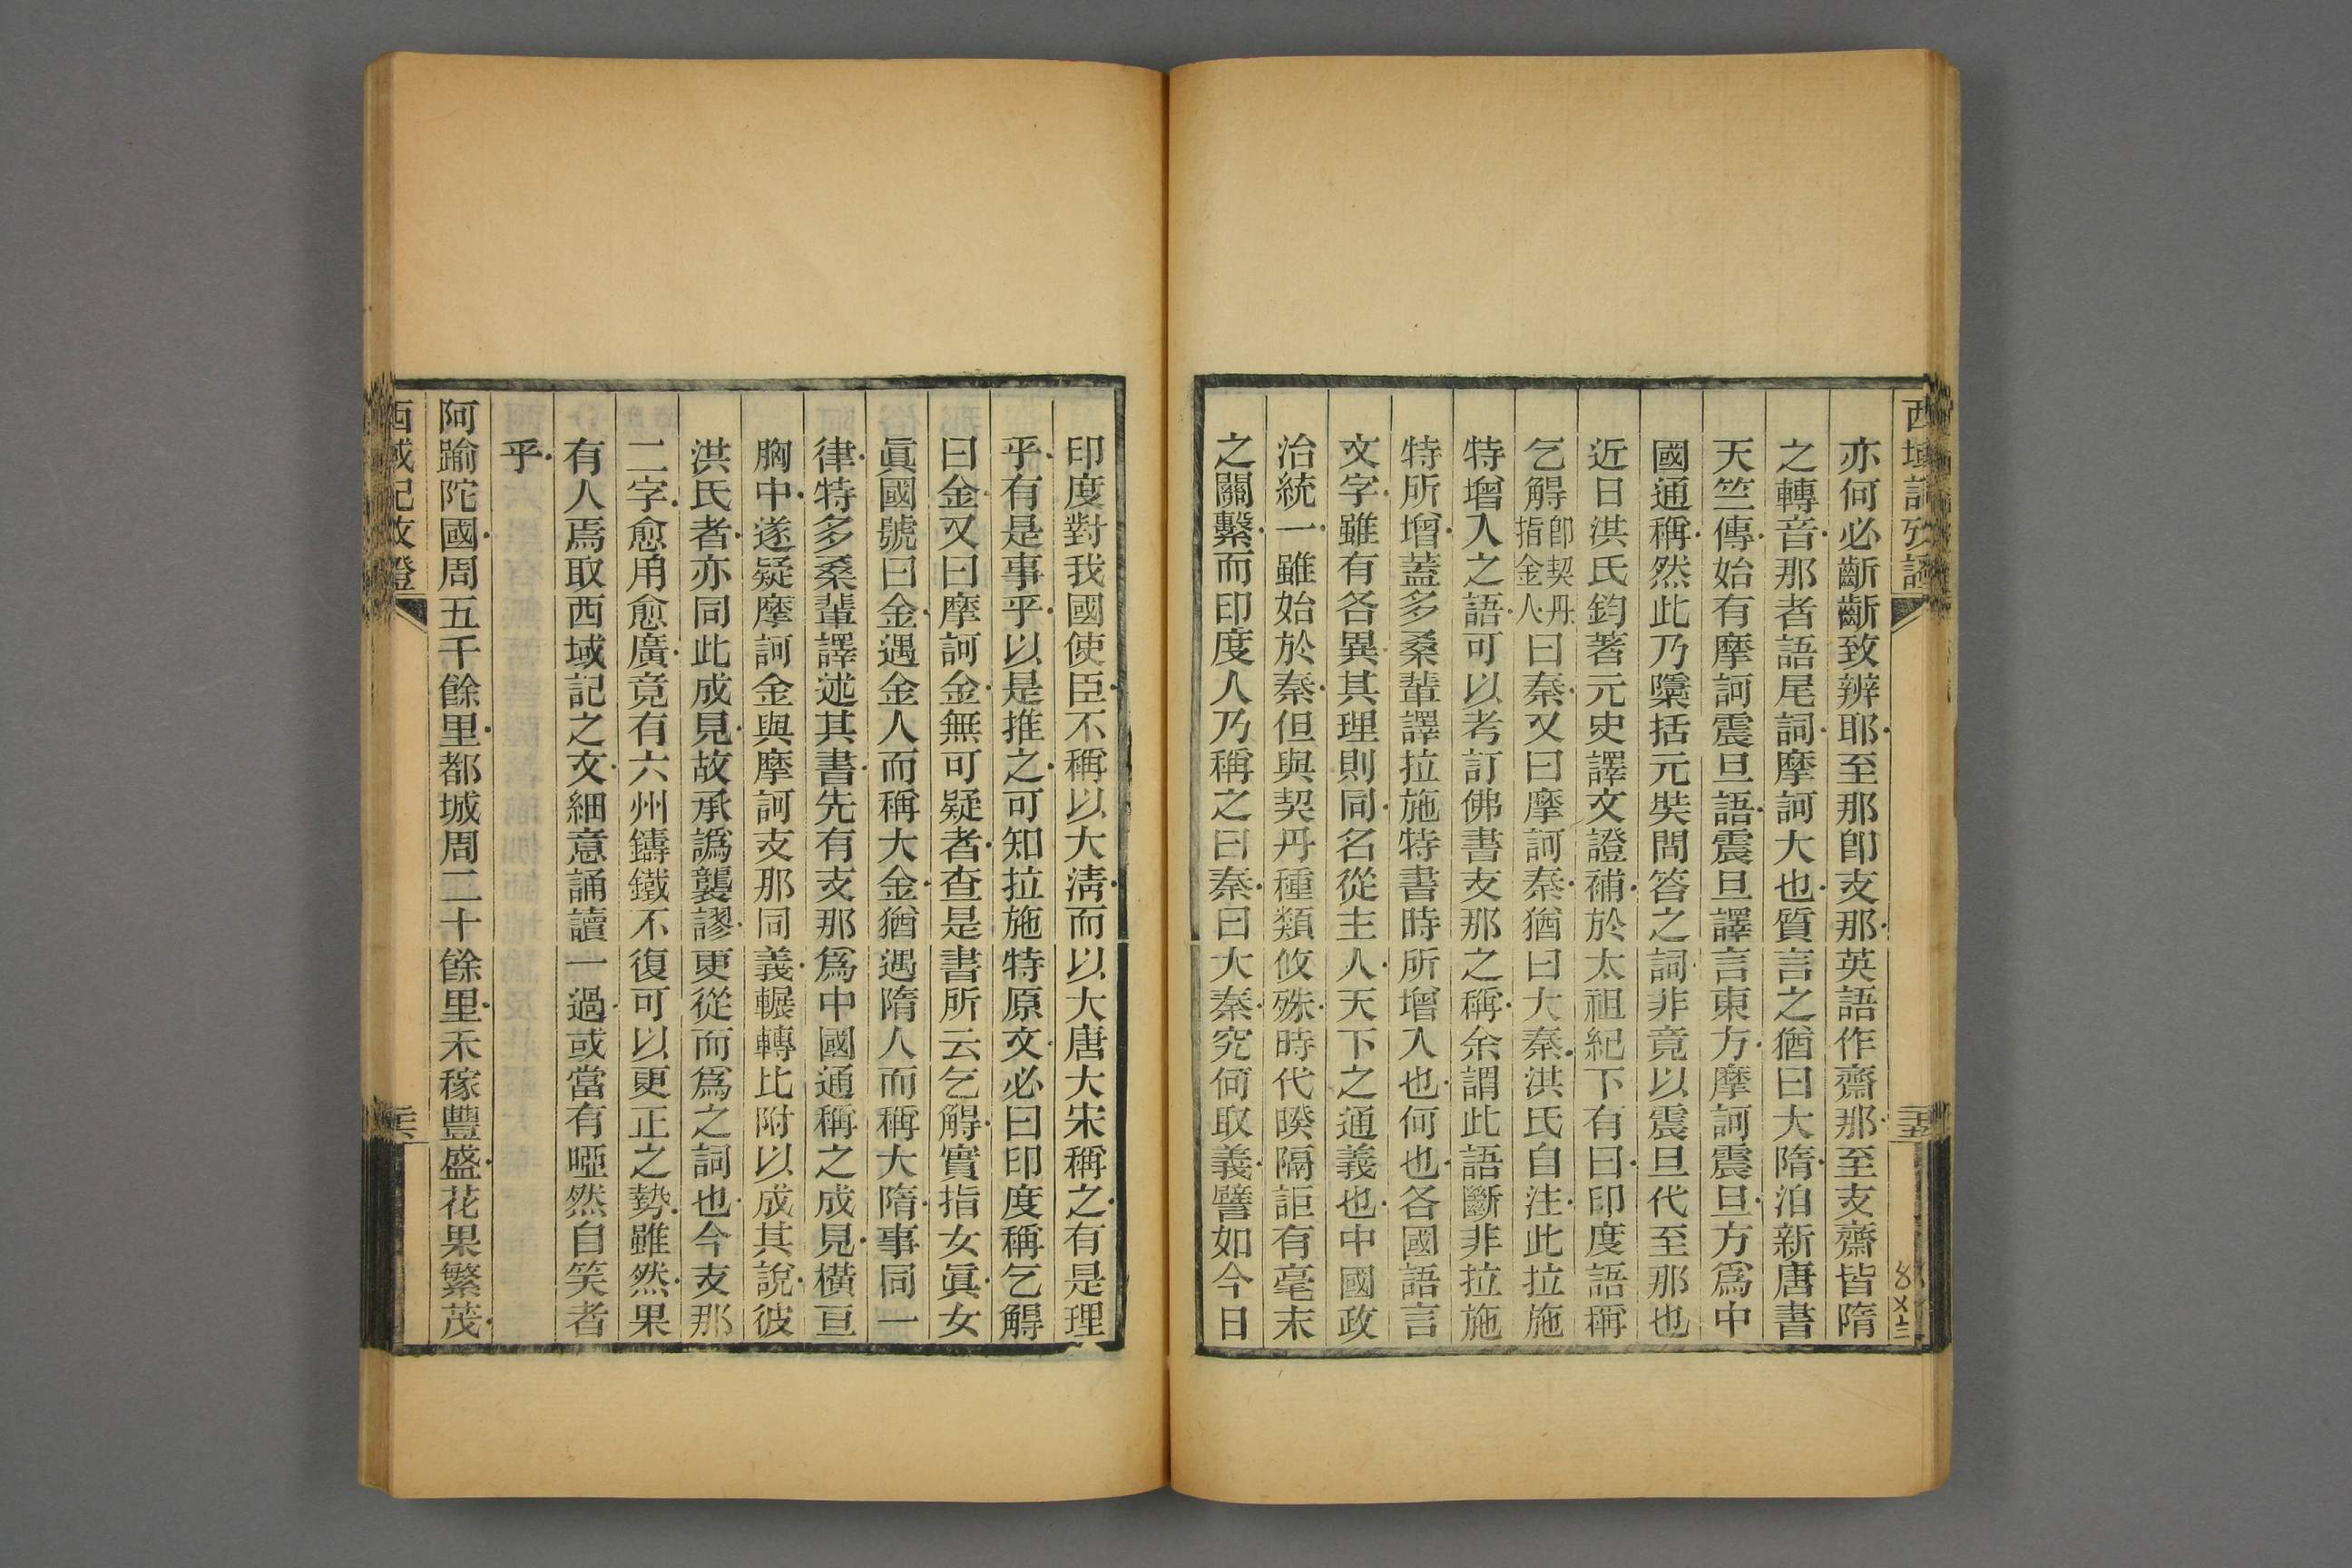 西域記攷證
亦何必齗齗致辨耶至那卽支那英語作齋那至支齋皆隋
之轉音那者語尾詞摩訶大也質言之猶曰大隋洎新唐書
天竺傳始有摩訶震旦語震旦譯言東方摩訶震旦方爲中
國通稱然此乃檃括元奘問答之詞非竟以震旦代至那也
近日洪氏鈞著元史譯文證補於太祖紀下有曰印度語稱
乞䚟卽契丹指金人曰秦又曰摩訶秦猶曰大秦洪氏自注此拉施
特增入之語可以考訂佛書支那之稱余謂此語斷非拉施
特所增蓋多桑輩譯拉施特書時所增入也何也各國語言
文字雖有各異其理則同名從主人天下之通義也中國政
治統一雖始於秦但與契丹種類攸殊時代暌隔詎有毫末
之關繫而印度人乃稱之曰秦曰大秦究何取義譬如今日
印度對我國使臣不稱以大淸而以大唐大宋稱之有是理
乎有是事乎以是推之可知拉施特原文必曰印度稱乞䚟
曰金又曰摩訶金無可疑者查是書所云乞䚟實指女眞女
眞國號曰金遇金人而稱大金猶遇隋人而稱大隋事同一
律特多桑輩譯述其書先有支那爲中國通稱之成見橫亘
胸中遂疑摩訶金與摩訶支那同義輾轉比附以成其說彼
洪氏者亦同此成見故承譌襲謬更從而爲之詞也今支那
二字愈用愈廣竟有六州鑄鐵不復可以更正之勢雖然果
有人焉取西域記之文細意誦讀一過或當有啞然自笑者
乎
阿踰陀國周五千餘里都城周二十餘里禾稼豐盛花果繁茂
西域記攷證